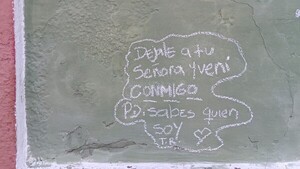 DEJALE A tU
Señora y vení
CONMIGO
P.D. SABES quien
SOY
T.B.